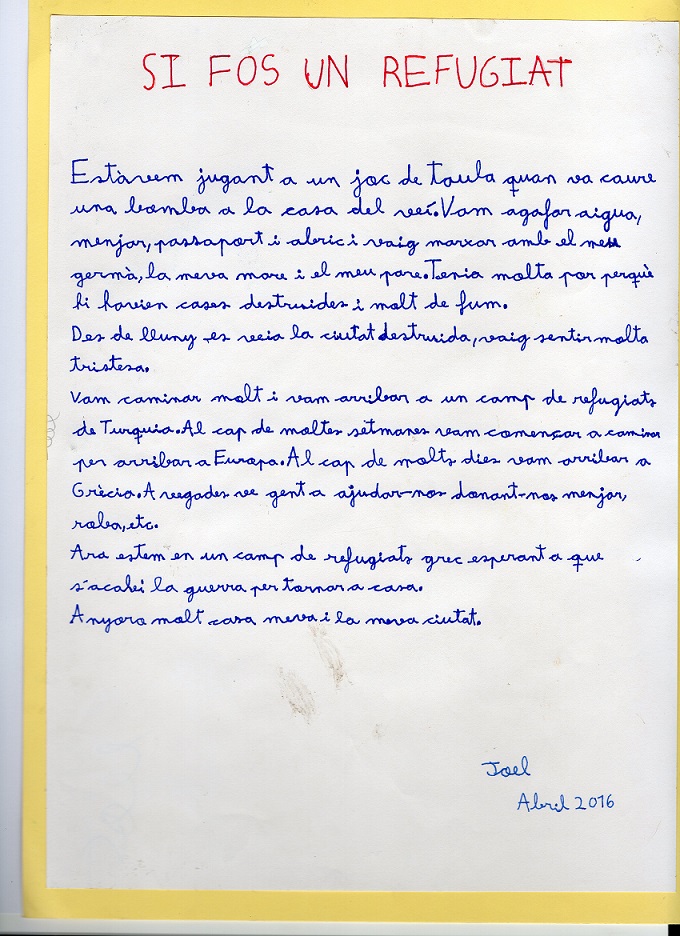 SI FOS UN REFUGIAT
Estàvem jugant a un joc de taula quan va caure
una bomba a la casa del veí. Vam agafar aigua,
menjar, passaport i abric i vaig marxar amb el meu
germà, la meva mare i el meu pare. Tenia molta por perquè
hi havien cases destruides i molt de fum.
Des de lluny es veia la ciutat destruida, vaig sentir molta
tristesa.
Vam caminar molt i vam arribar a un camp de refugiats
de Turquia. Al cap de moltes setmanes vam començar a caminar
per arribar a Europa. Al cap de molts dies vam arribar a
Grècia. A vegades ve gent a ajudar-nos donant-nos menjar,
roba, etc.
Ara estem en un camp de refugiats grec esperant a que
s'acabi la guerra per tornar a casa.
Anyoro molt casa meva i la meva ciutat.
Joel
Abril 2016